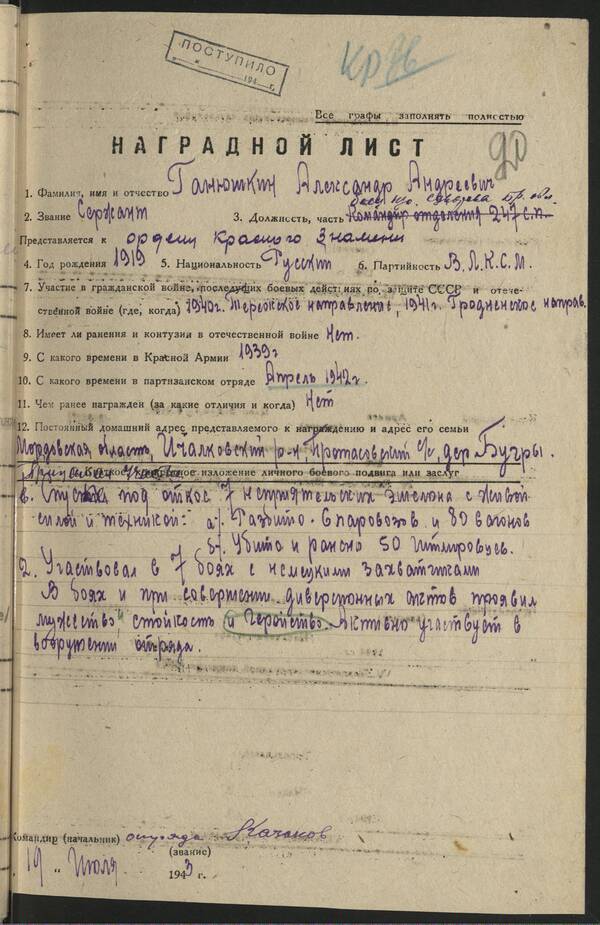 ПОСТУПИЛО
" " 194 г.
Кр Зв
Все графы заполнять полностью
НАГРАДНОЙ ЛИСТ
20
1. Фамилия, имя и отчество Ганюшкин Александр Андреевич
2. Звание Сержант 3. Должность, часть Командир отделения 247 с.п.
Представляется к ордену Красного Знамени
4. Год рождения 1919 5. Национальность Русский 6. Партийность В.Л.К.С.М.
7. Участие в гражданской войне, последующих боевых действиях по защите СССР и отече-
ственной войне (где, когда) 1940г. Териокское направление, 1941г. Гродненское направ.
8. Имеет ли ранения и контузии в отечественной войне Нет.
9. С какого времени в Красной Армии 1939г
10. С какого времени в партизанском отряде Апрель 1942г.
11. Чем ранее награжден (за какие отличия и когда) Нет
12. Постоянный домашний адрес представляемого к награждению и адрес его семьи
Мордовская область, Ичалковский р-н, Протасовский с/с, дер Бугры.
Краткое конкретное изложение личного боевого подвига или заслуг
в. Спуске под откос 7 неприятельских эшелона с живой
силой и техникой: а/. Разбито - 6 паровозов и 80 вагонов
б/. Убито и ранено 50 гитлеровцев.
2. Участвовал в 7 боях с немецкими захватчиками
В боях и при совершении диверсионных актов проявил
мужество, стойкость и геройство. Активно участвует в
вооружении отряда.
Командир (начальник) отряда Качанов
(звание)
"19" Июля 1943 г.